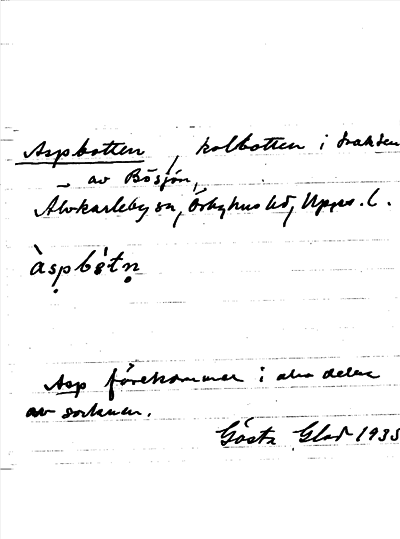 Aspbotten, kolbotten i trakten
av Bösjön,
Älvkarleby sn, Örbyhus hd, Upps. l.
àspbòtn̥
Asp förekommer i alla delar
av socknen.
Gösta Glad 1935